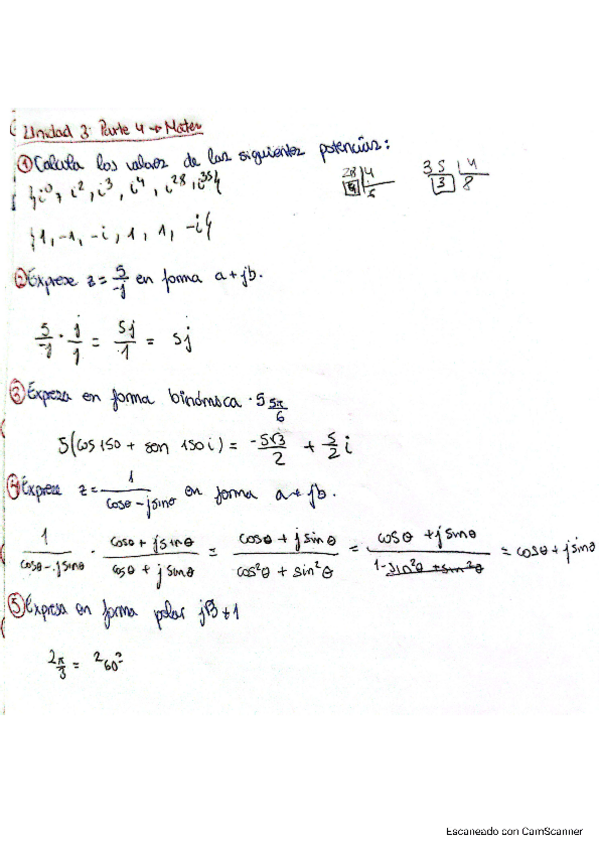 Unidad 3: Parte 4 → Mates
① Calcula los valores de las siguientes potencias:
{i⁰, i², i³, i⁴, i²⁸, i³⁵}
28 | 4
35 | 4
3 8
{1, -1, -i, 1, 1, -i}
② Exprese z = 5/-j en forma a + jb.
5/-j · j/j = 5j/1 = 5j
③ Expresa en forma binómica · 5 5π/6
5(cos 150 + sen 150 i) = -5√3/2 + 5/2 i
④ Exprese z = 1/(cosθ - jsinθ) en forma a + jb.
1/(cosθ - jsinθ) · (cosθ + jsinθ)/(cosθ + jsinθ) = (cosθ + jsinθ)/(cos²θ + sin²θ) = (cosθ + jsinθ)/(1 - sin²θ + sin²θ) = cosθ + jsinθ
⑤ Expresa en forma polar j√3 + 1
2 π/3 = 2 60º
Escaneado con CamScanner